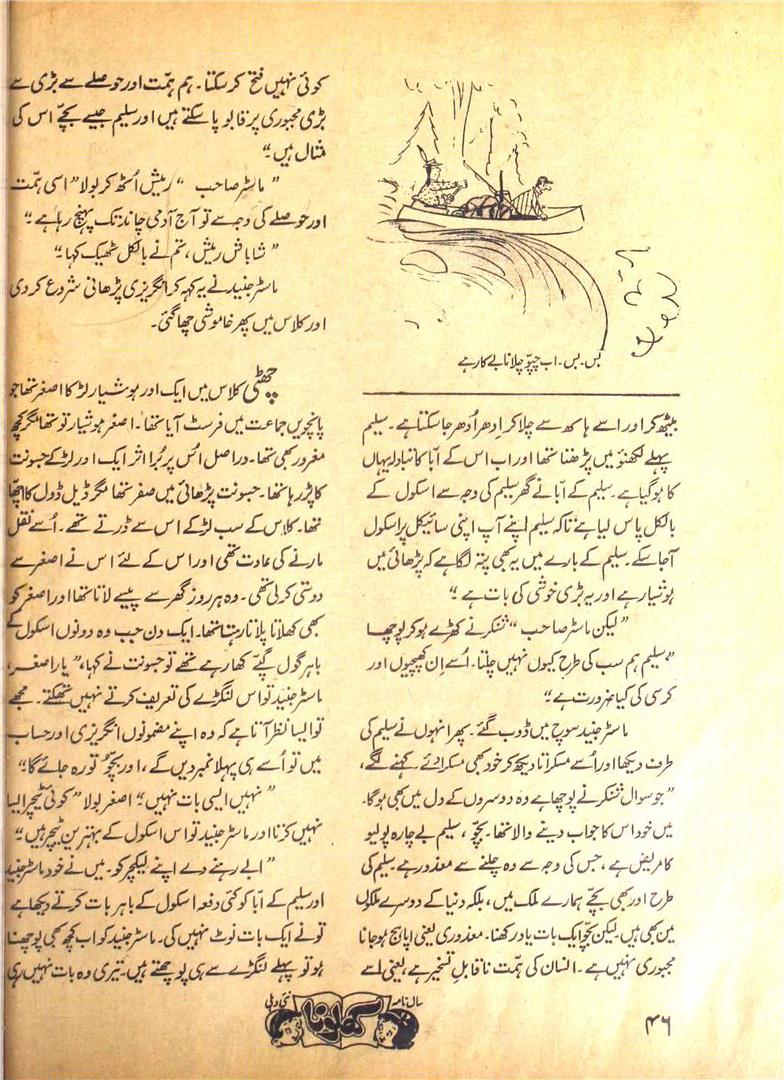 بس۔ بس۔ اب چپّو چلانا بے کار ہے
بیٹھ کر اور اسے ہاتھ سے چلا کر اِدھر اُدھر جا سکتا ہے۔ سلیم
پہلے لکھنؤ میں پڑھتا تھا اور اب اس کے ابّا کا تبادلہ یہاں
کا ہو گیا ہے۔ سلیم کے ابّا نے گھر سلیم کی وجہ سے اسکول کے
بالکل پاس لیا ہے تاکہ سلیم اپنے آپ اپنی سائیکل پر اسکول
آ جا سکے۔ سلیم کے بارے میں یہ بھی پتہ لگا ہے کہ پڑھائی میں
ہوشیار ہے اور یہ بڑی خوشی کی بات ہے۔“
”لیکن ماسٹر صاحب“ شنکر نے کھڑے ہو کر پوچھا
”سلیم ہم سب کی طرح کیوں نہیں چلتا۔ اُسے اِن کھپچیوں اور
کرسی کی کیا ضرورت ہے“
ماسٹر جنید سوچ میں ڈوب گئے۔ پھر انہوں نے سلیم کی
طرف دیکھا اور اُسے مسکراتا دیکھ کر خود بھی مسکرا دئے۔ کہنے لگے،
”جو سوال شنکر نے پوچھا ہے وہ دوسروں کے دل میں بھی ہوگا۔
میں خود اس کا جواب دینے والا تھا۔ بچّو، سلیم بے چارہ پولیو
کا مریض ہے، جس کی وجہ سے وہ چلنے سے معذور ہے۔ سلیم کی
طرح اور بھی بچّے ہمارے ملک میں، بلکہ دنیا کے دوسرے ملکوں
میں بھی ہیں۔ لیکن بچّو ایک بات یاد رکھنا۔ معذوری یعنی اپاہج ہو جانا
مجبوری نہیں ہے۔ انسان کی ہمّت ناقابلِ تسخیر ہے، یعنی اسے
کوئی نہیں فتح کر سکتا۔ ہم ہمّت اور حوصلے سے بڑی سے
بڑی مجبوری پر قابو پا سکتے ہیں اور سلیم جیسے بچّے اس کی
مثال ہیں۔“
”ماسٹر صاحب“ رمیش اُٹھ کر بولا ”اسی ہمّت
اور حوصلے کی وجہ سے تو آج آدمی چاند تک پہنچ رہا ہے۔“
”شاباش رمیش، تم نے بالکل ٹھیک کہا۔“
ماسٹر جنید نے یہ کہہ کر انگریزی پڑھانی شروع کر دی
اور کلاس میں پھر خاموشی چھا گئی۔
چھٹی کلاس میں ایک اور ہوشیار لڑکا اصغر تھا جو
پانچویں جماعت میں فرسٹ آیا تھا۔ اصغر ہوشیار تو تھا مگر کچھ
مغرور بھی تھا۔ دراصل اُس پر بُرا اثر ایک اور لڑکے جسونت
کا پڑ رہا تھا۔ جسونت پڑھائی میں صفر تھا مگر ڈیل ڈول کا اچھّا
تھا۔ کلاس کے سب لڑکے اس سے ڈرتے تھے۔ اُسے نقل
مارنے کی عادت تھی اور اس کے لئے اس نے اصغر سے
دوستی کر لی تھی۔ وہ ہر روز گھر سے پیسے لاتا تھا اور اصغر کو
بھی کھلاتا پلاتا رہتا تھا۔ ایک دن جب وہ دونوں اسکول کے
باہر گول گپّے کھا رہے تھے تو جسونت نے کہا، ”یار اصغر،
ماسٹر جنید تو اس لنگڑے کی تعریف کرتے نہیں تھکتے۔ مجھے
تو ایسا نظر آتا ہے کہ وہ اپنے مضمونوں انگریزی اور حساب
میں تو اُسے ہی پہلا نمبر دیں گے، اور بچّو تُو رہ جائے گا۔“
”نہیں ایسی بات نہیں۔“ اصغر بولا ”کوئی ٹیچر ایسا
نہیں کرتا اور ماسٹر جنید تو اس اسکول کے بہترین ٹیچر ہیں۔“
”ابے رہنے دے اپنے لیکچر کو۔ میں نے خود ماسٹر جنید
اور سلیم کے ابّا کو کئی دفعہ اسکول کے باہر بات کرتے دیکھا ہے
تو نے ایک بات نوٹ نہیں کی۔ ماسٹر جنید کو اب کچھ بھی پوچھنا
ہو تو پہلے لنگڑے سے ہی پوچھتے ہیں۔ تیری وہ بات نہیں رہی
سال نامہ کھلونا نئی دہلی
۴۶